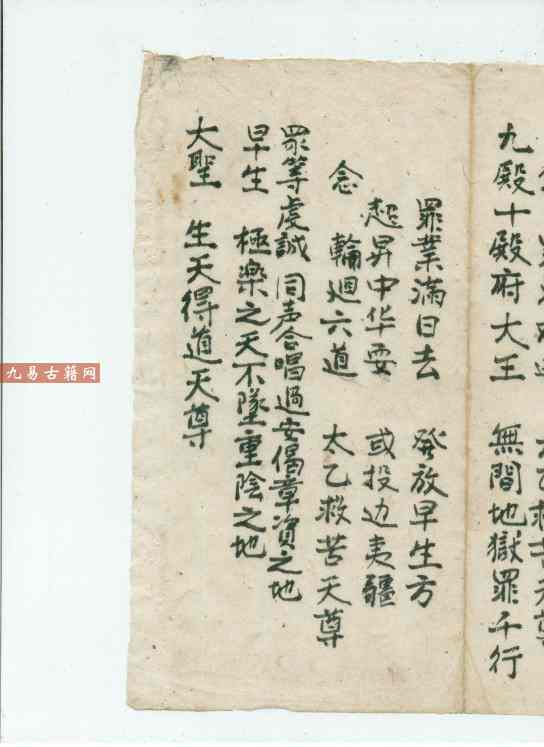 太乙救苦天尊
九殿十殿府大王 無間地獄罪千行
罪業滿日去 發放早生方
超昇中华耍 或投边夷疆
念 輪廻六道 太乙救苦天尊
眾等虔誠 同声合唱過安偈章資之地
早生 極楽之天不墜重陰之地
大聖 生天得道天尊
九易古籍网